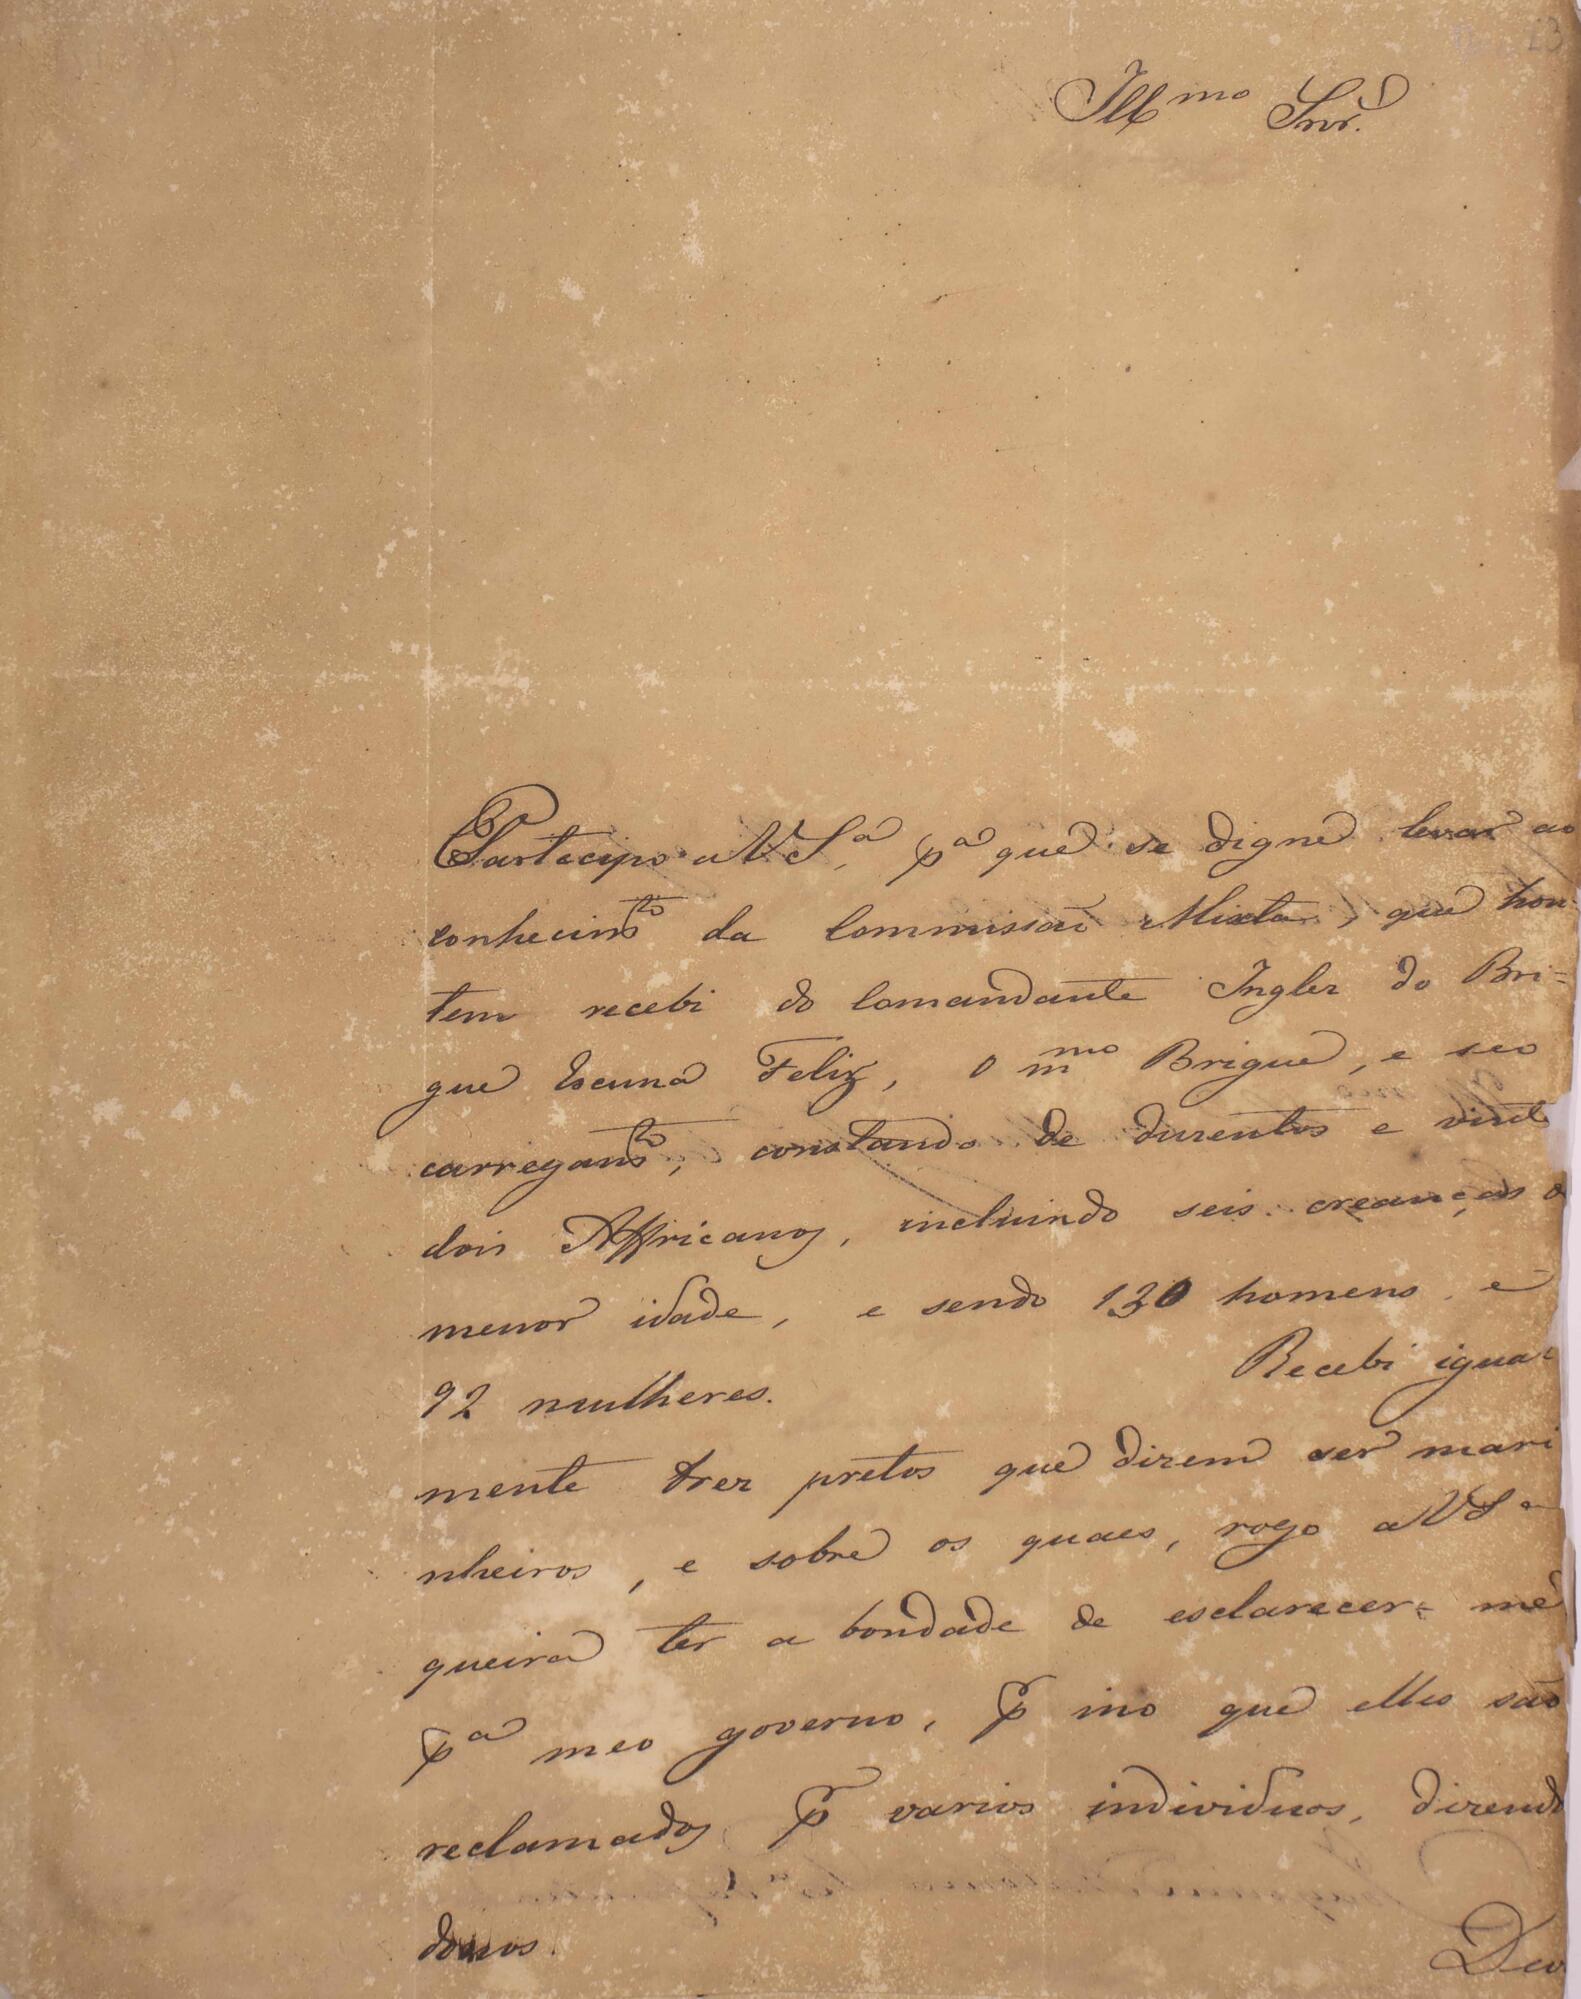 Ill^mo Snr.
Partecipo a V S.ª pª que se digne levar ao
conhecim^to da Commissaõ Mixta, que hon-
tem recebi do Comandante Inglez do Bri=
gue Escuna Feliz, o m^mo Brigue, e seo
carregam^to, constando de duzentos e vinte
dois Affricanos, incluindo seis creanças de
menor idade, e sendo 130 homens e
92 mulheres. Recebi igual
mente trez pretos que dizem ser mari
nheiros, e sobre os quaes, rogo a V Sª
queira ter a bondade de esclarecer-me
pª meo governo, p iso que elles são
reclamados p varios individuos, dizendo
donos.